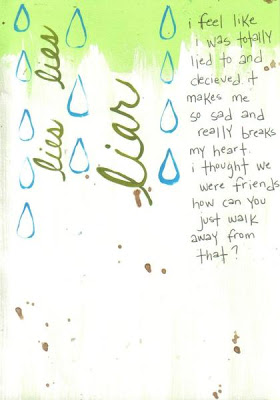 lies
lies
liar
i feel like
i was totally
lied to and
decieved it
makes me
so sad and
really breaks
my heart.
i thought we
were friends
how can you
just walk
away from
that?